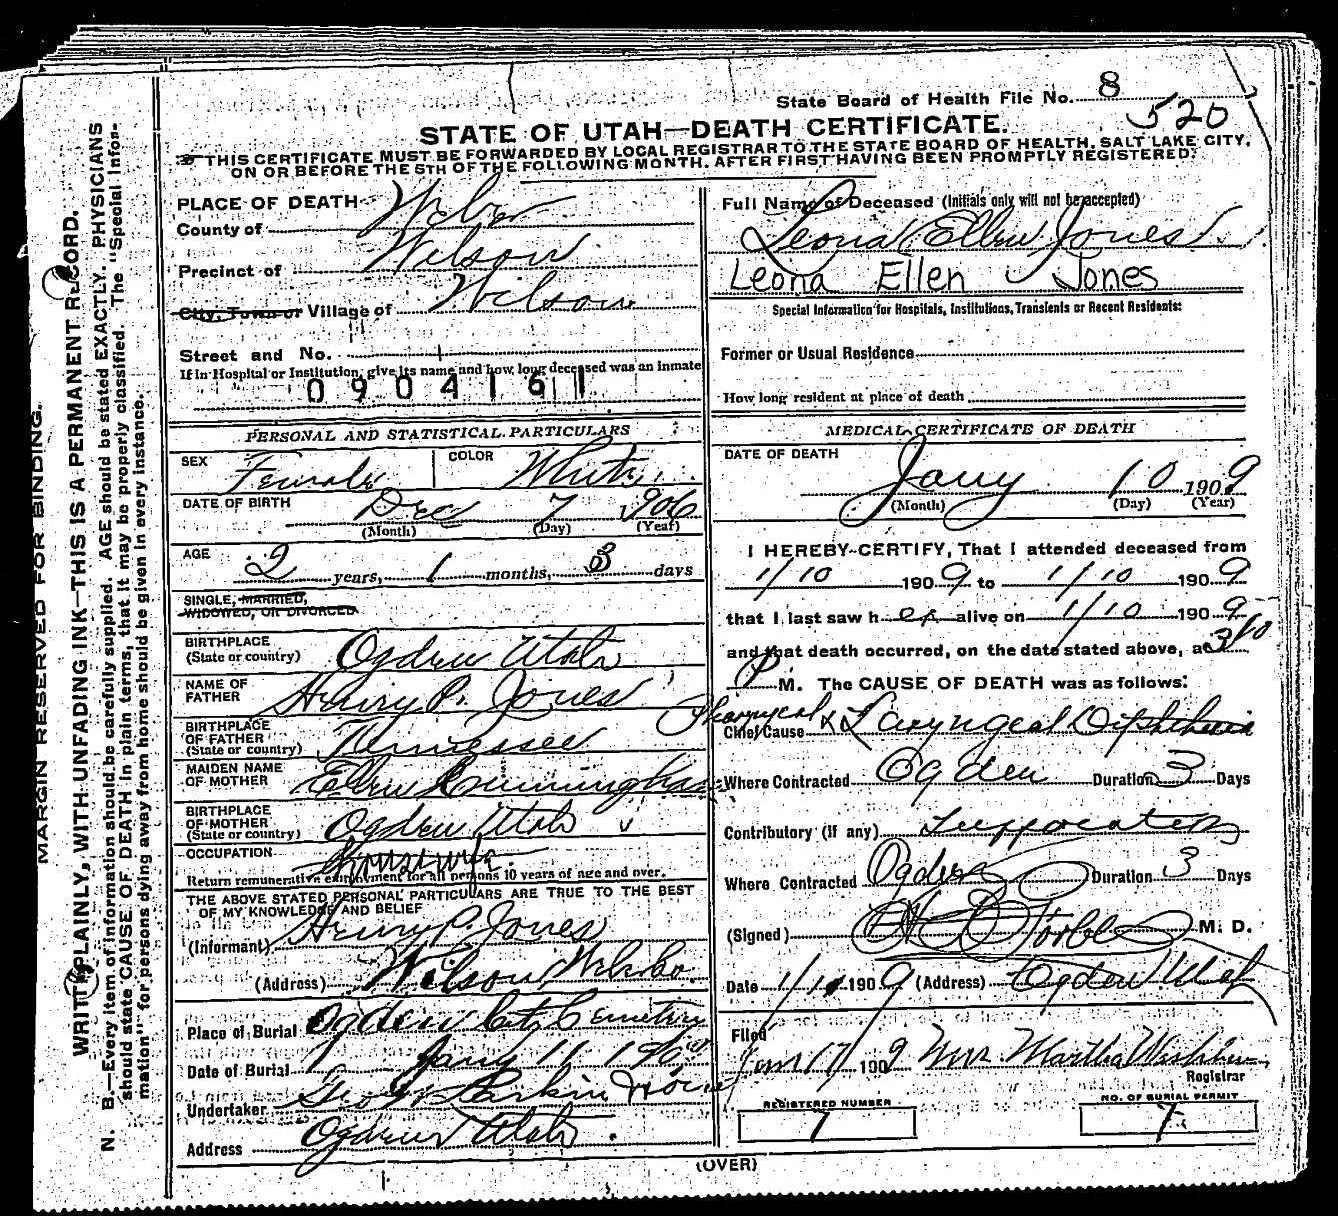 State Board of Health File No. 8
520
STATE OF UTAH—DEATH CERTIFICATE.
THIS CERTIFICATE MUST BE FORWARDED BY LOCAL REGISTRAR TO THE STATE BOARD OF HEALTH, SALT LAKE CITY,
ON OR BEFORE THE 5TH OF THE FOLLOWING MONTH, AFTER FIRST HAVING BEEN PROMPTLY REGISTERED.
MARGIN RESERVED FOR BINDING.
WRITE PLAINLY, WITH UNFADING INK—THIS IS A PERMANENT RECORD.
N. B.—Every item of information should be carefully supplied. AGE should be stated EXACTLY. PHYSICIANS
should state CAUSE OF DEATH in plain terms, that it may be properly classified. The "Special Infor-
mation" for persons dying away from home should be given in every instance.
PLACE OF DEATH
County of Weber
Precinct of Wilson
City, Town or Village of Wilson
Street and No.
If in Hospital or Institution, give its name and how long deceased was an inmate
0904161
PERSONAL AND STATISTICAL PARTICULARS
SEX Female COLOR White
DATE OF BIRTH Dec 7 1906
(Month) (Day) (Year)
AGE 2 years, 1 months, 3 days
SINGLE, MARRIED,
WIDOWED, OR DIVORCED
BIRTHPLACE
(State or country) Ogden Utah
NAME OF
FATHER Henry P. Jones
BIRTHPLACE
OF FATHER
(State or country) Tennessee
MAIDEN NAME
OF MOTHER Ellen Cunningham
BIRTHPLACE
OF MOTHER
(State or country) Ogden Utah
OCCUPATION
Return remunerative employment for all persons 10 years of age and over.
THE ABOVE STATED PERSONAL PARTICULARS ARE TRUE TO THE BEST
OF MY KNOWLEDGE AND BELIEF
(Informant) Henry P. Jones
(Address) Wilson Web. Co.
Place of Burial Ogden City Cemetery
Date of Burial Jany 11 1909
Undertaker Larkin
Address Ogden Utah
Full Name of Deceased (Initials only will not be accepted)
Leona Ellen Jones
Leona Ellen Jones
Special Information for Hospitals, Institutions, Transients or Recent Residents:
Former or Usual Residence
How long resident at place of death
MEDICAL CERTIFICATE OF DEATH
DATE OF DEATH
Jany 10 1909
(Month) (Day) (Year)
I HEREBY CERTIFY, That I attended deceased from
1/10 1909 to 1/10 1909
that I last saw her alive on 1/10 1909
and that death occurred, on the date stated above, at 3/10
P M. The CAUSE OF DEATH was as follows:
Pharyngeal &
Chief Cause Laryngeal Diphtheria
Where Contracted Ogden Duration 3 Days
Contributory (if any) Suffocation
Where Contracted Ogden Duration 3 Days
(Signed) M. D.
Date 1/10 1909 (Address) Ogden Utah
Filed
Jan 17 1909 Mrs. Martha
Registrar
REGISTERED NUMBER
7
NO. OF BURIAL PERMIT
7
(OVER)